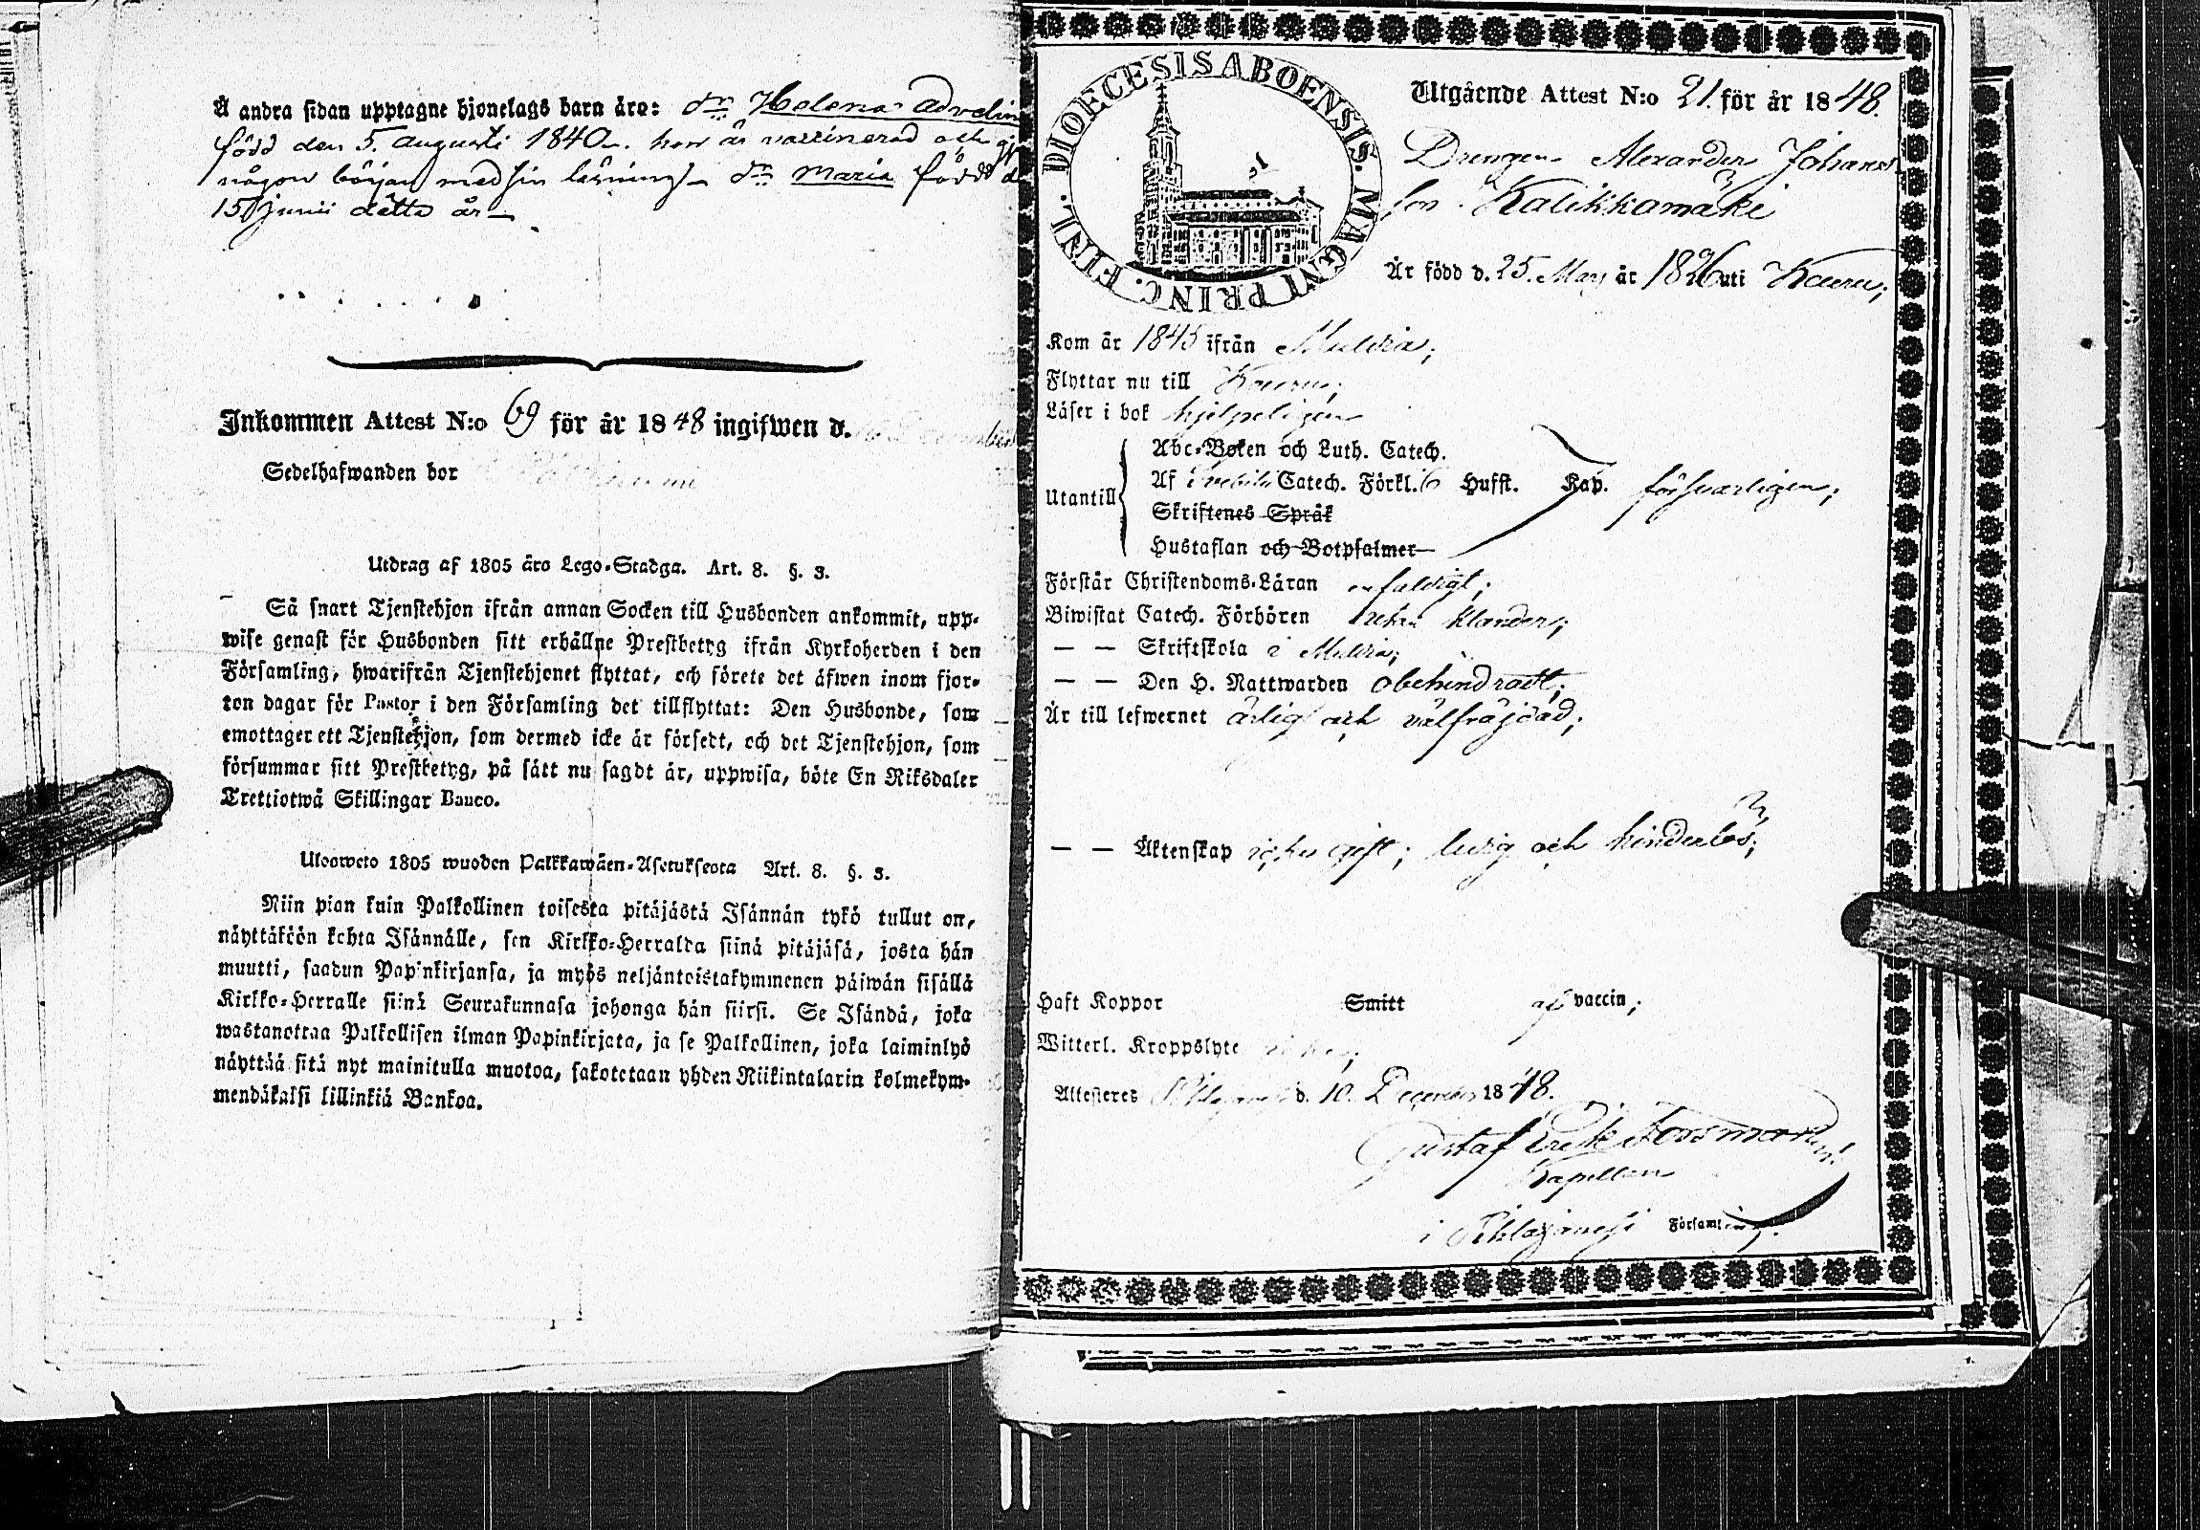 Å andra sidan upptagne hjonelags barn äro: dr Helena Advelin
född den 5. augusti 1840. hon är vaccinerad och
någon början med sin läsning. dr Maria född d
15 junii detta år
Inkommen Attest N:o 69 för år 1848 ingifwen d.
Sedelhafwanden bor
Utdrag af 1805 åro Lego-Stadga. Art. 8. §. 3.
Så snart Tjenstehjon ifrån annan Socken till Husbonden ankommit, upp-
wise genast för Husbonden sitt erhållne Prestbetyg ifrån Kyrkoherden i den
Församling, hwarifrån Tjenstehjonet flyttat, och förete det äfwen inom fjor-
ton dagar för Pastor i den Församling det tillflyttat: Den Husbonde, som
emottager ett Tjenstehjon, som dermed icke är försedt, och det Tjenstehjon, som
försummar sitt Prestbetyg, på sätt nu sagdt är, uppwisa, böte En Riksdaler
Trettiotwå Skillingar Banco.
Ulosweto 1805 wuoden Palkkawäen-Asetuksesta Art. 8. §. 3.
Niin pian kuin Palkollinen toisesta pitäjästä Isännän tykö tullut on,
näyttäköön kohta Isännälle, sen Kirkko-Herralda siinä pitäjäsä, josta hän
muutti, saadun Papinkirjansa, ja myös neljäntoistakymmenen päiwän sisällä
Kirkko-Herralle siinä Seurakunnasa johonga hän siirsi. Se Isändä, joka
wastanottaa Palkollisen ilman Papinkirjata, ja se Palkollinen, joka laiminlyö
näyttää sitä nyt mainitulla muotoa, sakotetaan yhden Riikintalarin kolmekym-
mendäkaksi lillinkiä Bankoa.
DIOECESIS ABOENSIS. MAGNI PRINC. FINL.
Utgående Attest N:o 21. för år 1848.
Drengen Alexander Johans
son Kalikkamäki
Är född d. 25. May år 1826 uti Kauru;
Kom år 1845 ifrån Muldia;
Flyttar nu till
Läser i bok hjelpeligen
Utantill
Abc-Boken och Luth. Catech.
Af Svebilii Catech. Förkl. 6 Hufst. Kap. försvarligen;
Skriftenes Språk
Hustaflan och Botpsalmer
Förstår Christendoms-Läran enfaldigt;
Biwistat Catech. Förhören utan klander;
— — Skriftskola i Muldia;
— — Den H. Nattwarden obehindradt;
Är till lefwernet ärlig och välfräjdad;
— — Äktenskap icke gift; ledig och hinderlös;
Haft Koppor Smitt af vaccin;
Witterl. Kroppslyte
Attesteres d. 10. December 1848.
Gustaf Erik Forsman
Kapellan
i Pihlajavesi Församling.